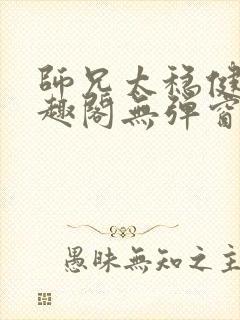 師兄太穩健
趣閣無彈窗
愚昧無知之主